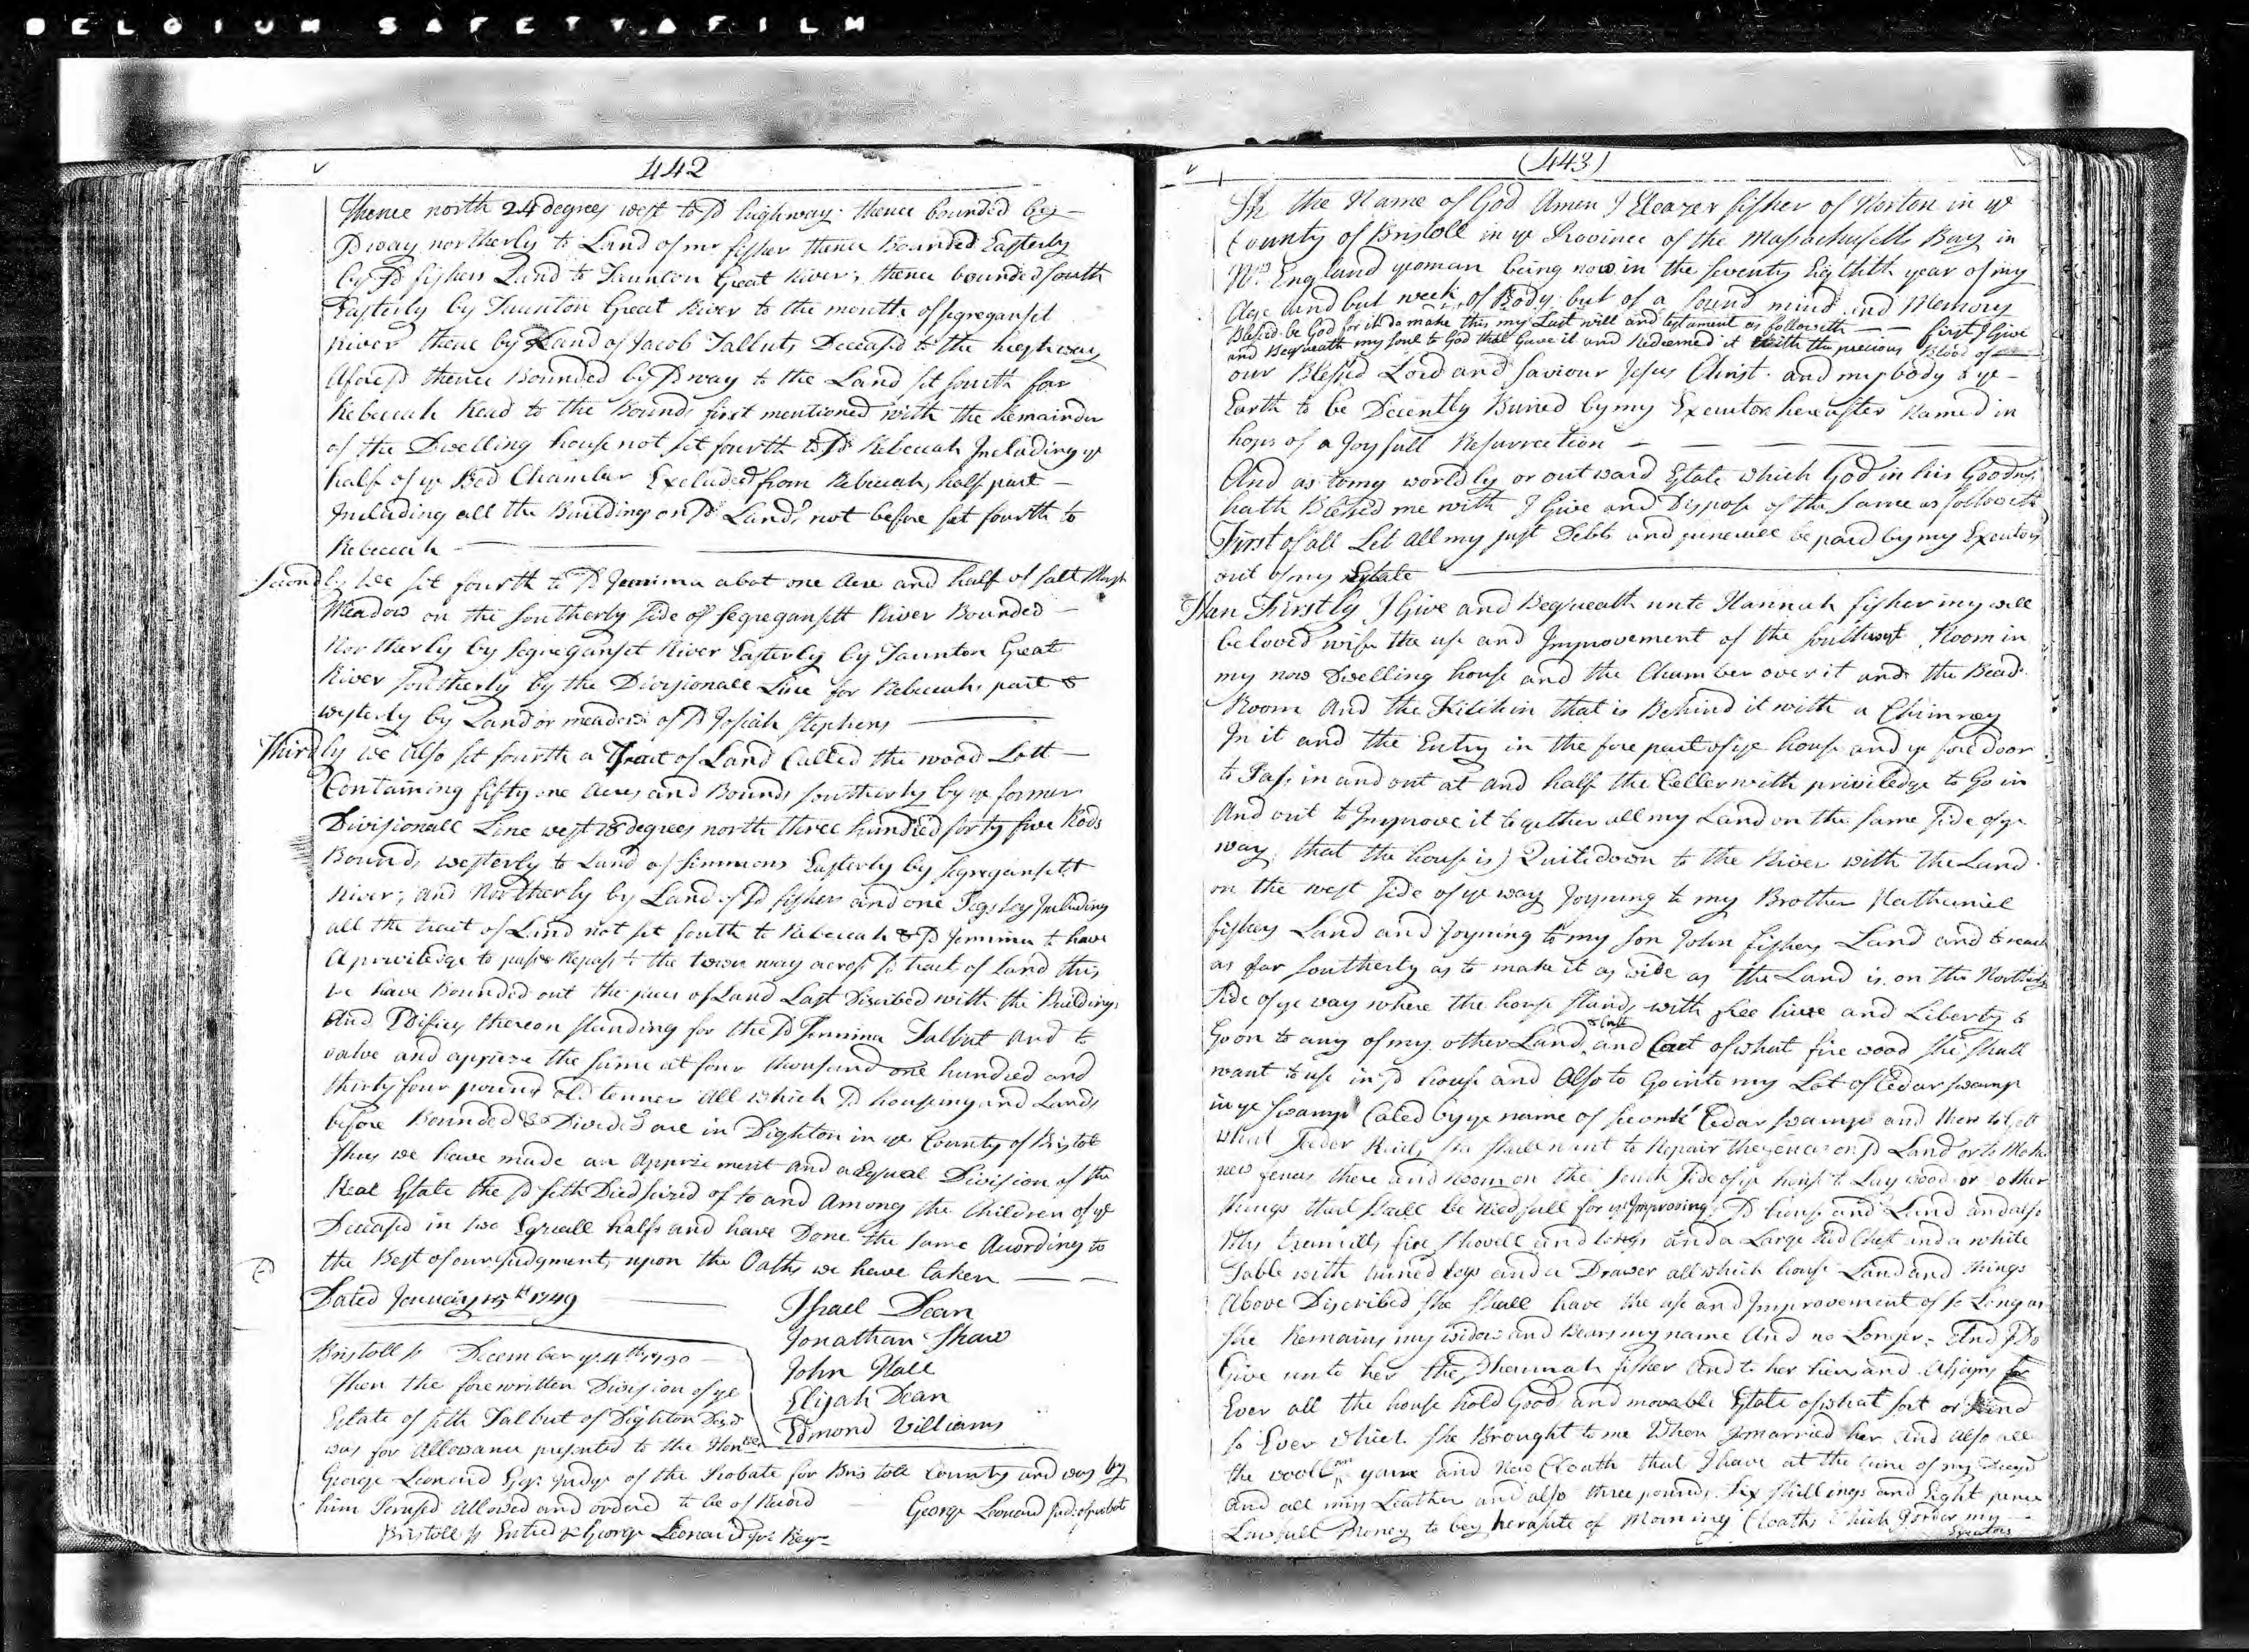 BELGIUM SAFETY FILM
442
Thence north 24 degrees west to sd highway thence bounded by
sd way northerly to Land of mr fisher thence Bounded Easterly
by sd fishers Land to Taunton Great River; thence bounded south
Easterly by Taunton Great River to the mouth of segreganset
River thence by Land of Jacob Talbuts Deceasd to the highway
aforesd thence Bounded by sd way to the Land set fourth for
Rebecah Read to the Bounds first mentioned with the Remainder
of the Dwelling house not set fourth to sd Rebecah Including ye
half of ye Bed Chamber Excluded from Rebecah, half part
Including all the Buildings on sd Land not before set fourth to
Rebecah
Secondly we set fourth to sd Jemima abot one Acre and half of salt Marsh
Meadow on the southerly side of segregansett River Bounded
Northerly by segreganset River Easterly by Taunton Great
River southerly by the Divisionall Line for Rebecahs part &
westerly by Land or meadow of sd Josiah Stephens
Thirdly we Also set fourth a Tract of Land Called the wood Lott
Containing fifty one Acres and Bounds southerly by ye former
Divisionall Line west 28 degrees north three hundred forty five Rods
Bounds westerly to Land of Simmons Easterly by segregansett
River; and Northerly by Land of sd fishers and one Including
all the tract of Land not set fourth to Rebecah & sd Jemima to have
A priviledge to pass & Repass to the town way across sd tract of Land thus
we have Bounded out the pieces of Land Last Discribed with the Buildings
And Edifices thereon standing for the sd Jemima Talbut And to
valve and apprize the same at four thousand one hundred and
thirty four pounds old tenner All which sd housing and Lands
before Bounded & Divided are in Dighton in ye County of Bristol
Thus we have made an Apprizement and a Equal Division of the
Real Estate the sd seth Died seized of to and Among the Children of ye
Deceasd in two Equall halfs and have Done the same According to
the Best of our Judgment, upon the Oaths we have taken
Dated January 15th 1749
Israel Dean
Jonathan Shaw
John Hall
Elijah Dean
Edmond Williams
Bristoll ss December ye 4th 1750
Then the forewritten Division of ye
Estate of seth Talbut of Dighton Decd
was for Allowance presented to the Honble
George Leonard Esqr Judge of the Probate for Bristoll County and was by
him Perused Allowed and ordered to be of Record George Leonard Jud: of probat
Bristoll ss Entred pr George Leonard Jur Regr
(443)
In the Name of God Amen I Eleazer fisher of Norton in ye
County of Bristoll in ye Province of the Massachusetts Bay in
Nw England yeoman being now in the seventy Eightith year of my
Age and but week of Body but of a sound mind and Memory
Blessed be God for it do make this my Last will and testament as followeth first I Give
and Bequeath my soul to God that Gave it and Redeemed it with the precious Blood of
our Blessed Lord and Saviour Jesus Christ. and my body to ye
Earth to be Decently Buried by my Executor hereafter Named in
hops of a Joyfull Resurrection
And as to my worldly or outward Estate which God in his Goodness
hath Blessed me with I Give and Dispose of the same as followeth
First of all Let all my just Debts and funerall be paid by my Executors
out of my Estate
Than Firstly I Give and Bequeath unto Hannah fisher my well
beloved wife the use and Improvement of the southwest Room in
my now Dwelling house and the Chamber over it and the Bead
Room And the Kitchin that is Behind it with a Chimney
In it and the Entry in the fore part of ye house and ye fore door
to Pass in and out at and half the Celler with priviledge to Go in
And out to Improve it together all my Land on the same side of ye
way that the house is) Quite down to the River with the Land
on the west side of ye way Joyning to my Brother Nathaniel
fishers Land and Joyning to my son John fishers Land and to reach
as far southerly as to make it as wide as the Land is on the Northerly
side of ye way where the house stands with free live and Liberty to
Go on to any of my other Land and Cart of what fire wood she shall
want to use in sd house and Also to Go into my Lot of Cedar swamp
in ye swamp Caled by ye name of Cedar swamp and there to Gitt
what seder Reils she shall want to Repair the fences on sd Land or to Make
new fences there and Room on the south side of ye house to Lay wood or other
things that shall be needfull for ye Improving sd house and Land and also
My trammill, fire shovell and tongs and a Large Red Chest and a white
Table with turned legs and a Drawer all which house Land and things
Above Discribed she shall have the use and Improvement of so Long as
she Remains my widow and Bears my name And no Longer: And I Do
Give unto her the sd hannah fisher And to her heirs and Assigns for
Ever all the house hold Goods and movable Estate of what sort or Kind
so Ever which she Brought to me When I married her And also all
the wooll yarn and New Cloath that I have at the time of my
And all my Leather and also three pounds six shillings and Eight pence
Lawfull Money to bey Morning Cloaths which I order my
Executors